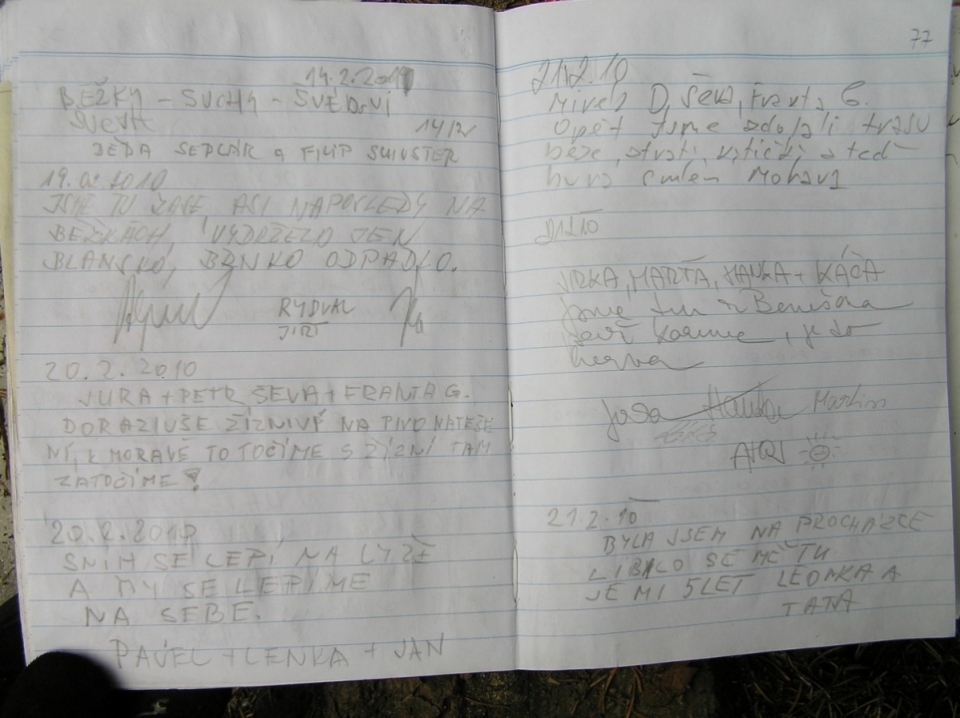 14.2.2010
BĚŽKY - SUCHÝ - 
14/2
DĚDA SEDLÁR a FILIP
19.02.2010
JSME TU ZASE, ASI NAPOSLEDY NA
BĚŽKÁCH, VYDRŽELO JEN
BLANSKO, BRNKO ODPADLO.
RYDVAL
JIŘÍ
20.2.2010
JURA + PETR ŠEVA + FRANTA G.
DORAZIVŠE ŽÍZNIVÝ NA PIVO NATĚŠE
NÍ, K MORAVĚ TO TOČÍME S ŽÍZNÍ TAM
ZATOČÍME!
20.2.2010
SNÍH SE LEPÍ NA LYŽE
A MY SE LEPÍME
NA SEBE.
PAVEL + LENKA + JAN
77
21.2.10
D, Šéva, Franta G.
Opět jsme zdolali trasu
a teď
směr Morava
JIRKA, MARŤA, HANKA + KÁČA
jsme tu z Benešova
je to
Martin
21.2.10
BYLA JSEM NA PROCHÁZCE
LÍBILO SE MĚ TU
JE MI 5 LET LEONKA A
TÁTA